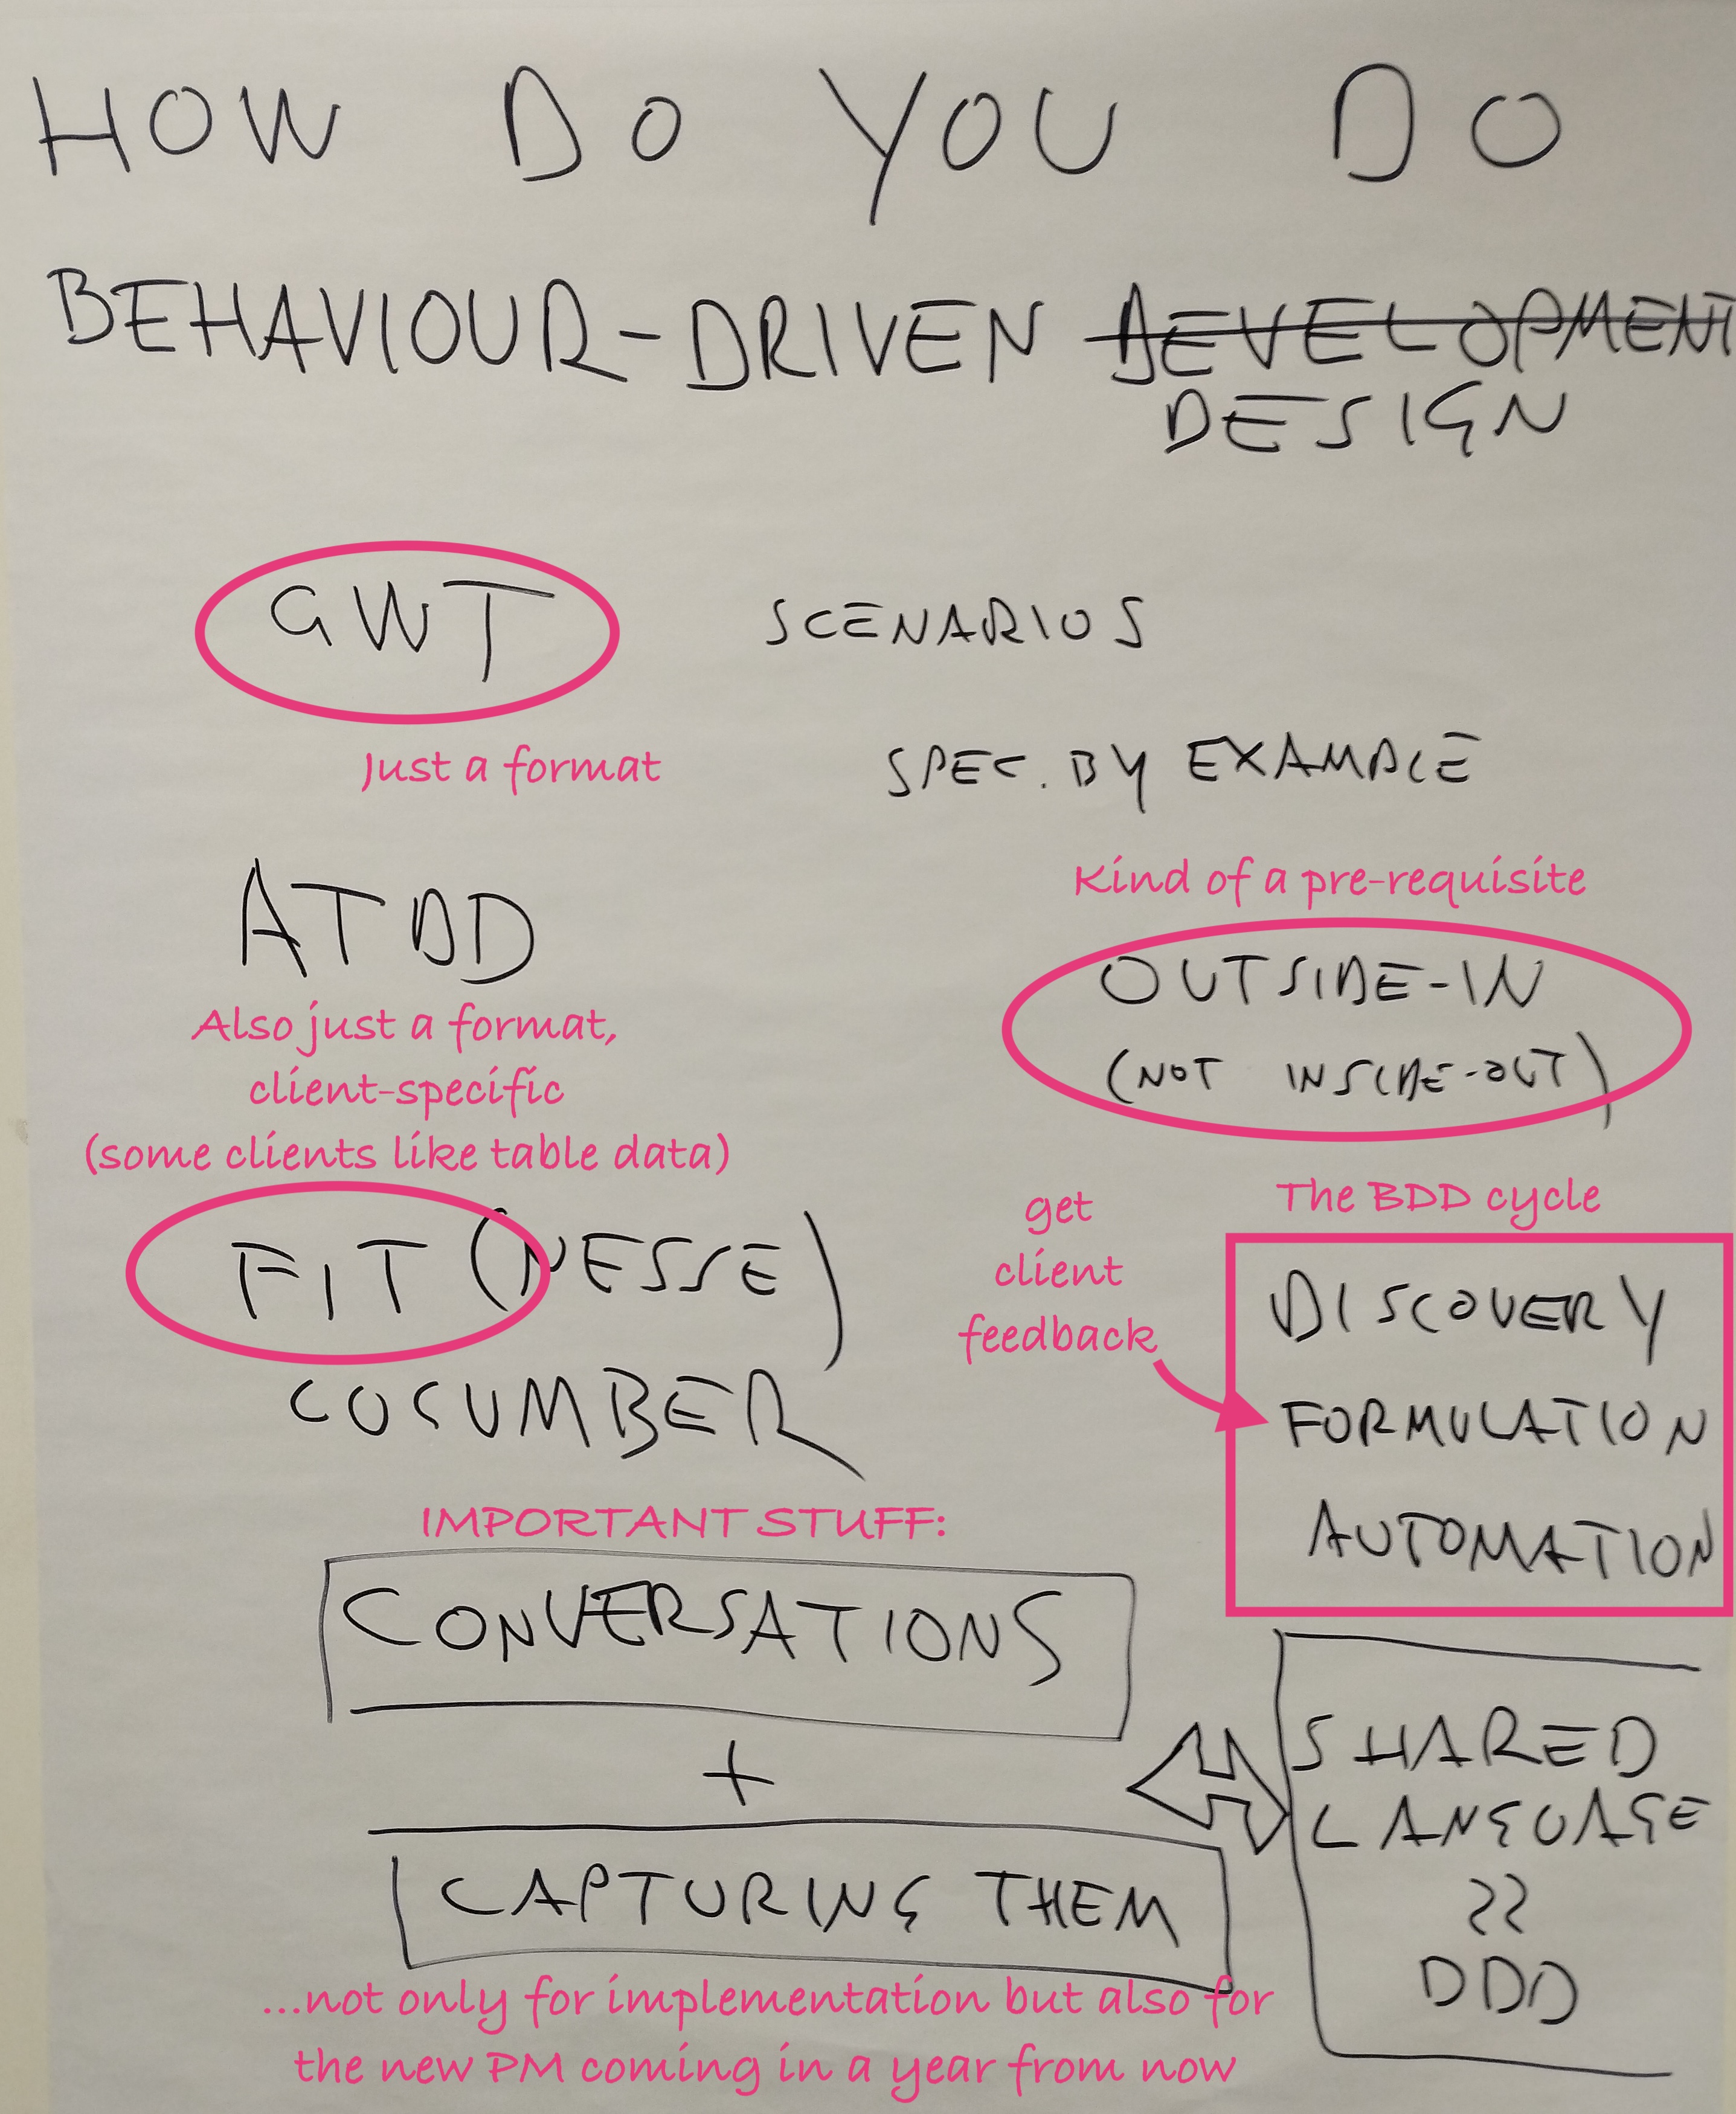 HOW DO YOU DO
BEHAVIOUR-DRIVEN DEVELOPMENT
DESIGN
GWT
SCENARIOS
Just a format
SPEC. BY EXAMPLE
ATDD
Also just a format,
client-specific
(some clients like table data)
Kind of a pre-requisite
OUTSIDE-IN
(NOT INSIDE-OUT)
FIT (NESSE)
CUCUMBER
get
client
feedback
The BDD cycle
DISCOVERY
FORMULATION
AUTOMATION
IMPORTANT STUFF:
CONVERSATIONS
+
CAPTURING THEM
SHARED
LANGUAGE
DDD
...not only for implementation but also for
the new PM coming in a year from now